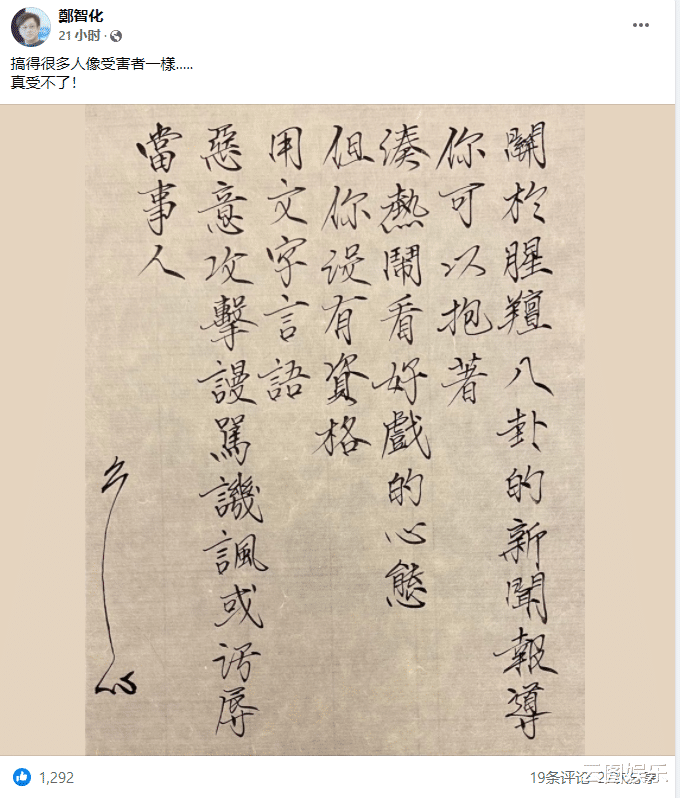 鄭智化
21 小时
搞得很多人像受害者一樣.....
真受不了！
關於腥羶八卦的新聞報導
你可以抱著
湊熱鬧看好戲的心態
但你沒有資格
用文字言語
惡意攻擊謾罵譏諷或污辱
當事人
1,292
19条评论
云图娱乐